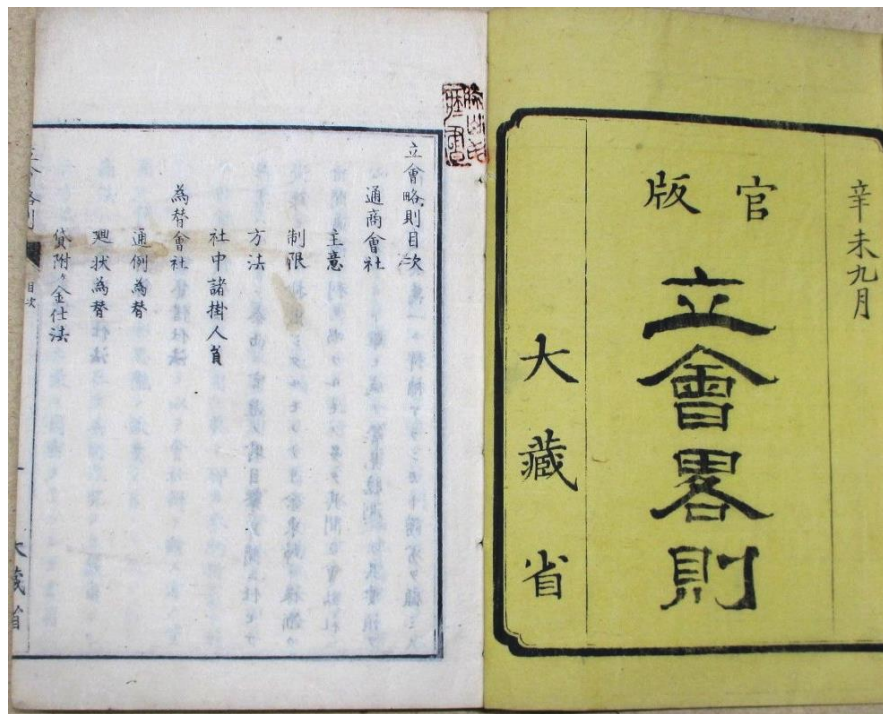 辛未九月
官版
立會畧則
大藏省
立會略則目次
通商會社
主意
制限
方法
社中諸掛人員
為替會社
通例為替
貸附ケ金仕法
目次
大藏省